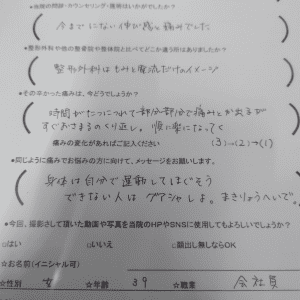 ●当院の問診・カウンセリング・施術はいかがでしたか?
今までにない伸び感と痛みでした
●整形外科や他の整骨院や整体院と比べてどこか違う所はありましたか?
整形外科はもみと電流だけのイメージ
●その辛かった痛みは、今どうでしょうか?
時間がたつにつれて部分部分で痛みとか出るが
すぐおさまるのくり返し。順に楽になってく
痛みの変化があればご記入ください (3)→(2)→(1)
●同じように痛みでお悩みの方に向けて、メッセージをお願いします。
身体は自分で運動してほぐそう
できない人は グアシャしよ。
●今回、撮影させて頂いた動画や写真を当院のHPやSNSに使用してもよろしいでしょうか?
□はい □いいえ □顔出し無しならOK
☆お名前(イニシャル可)
☆性別 女 ☆年齢 39 ☆職業 会社員